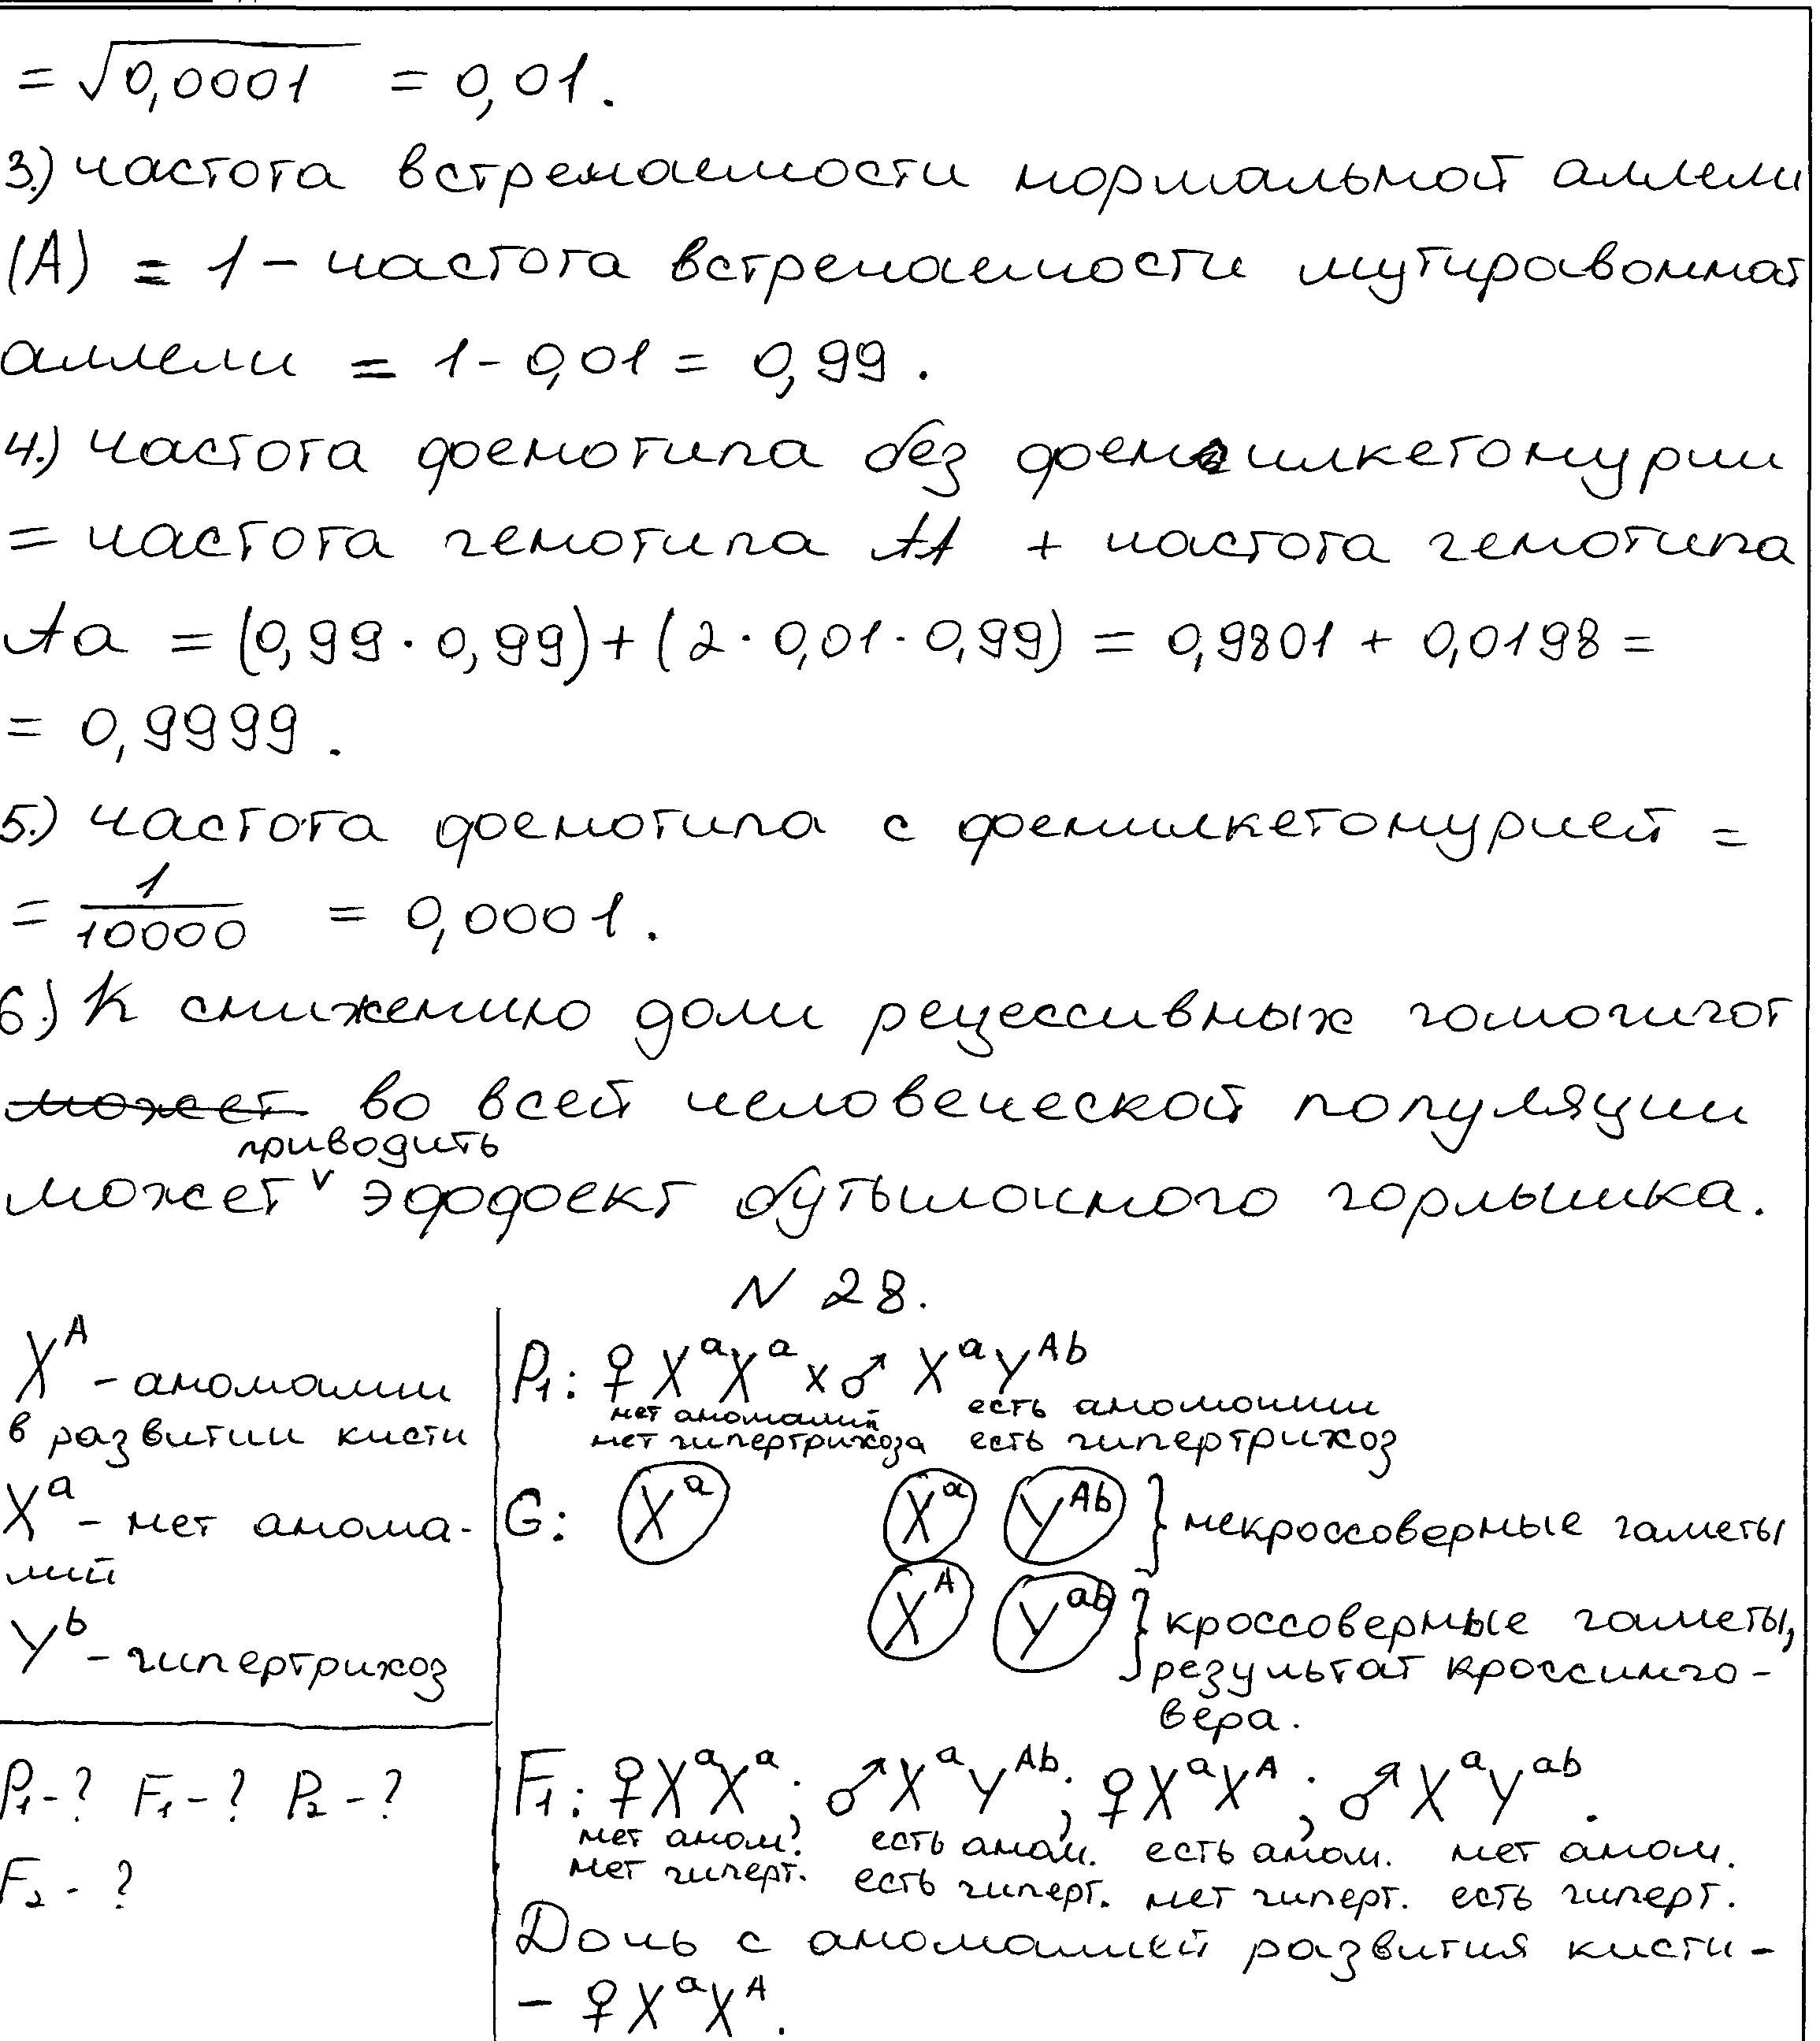 = √0,0001 = 0,01.
3.) частота встречаемости нормальной аллели
(А) = 1 - частота встречаемости мутированной
аллели = 1 - 0,01 = 0,99.
4.) частота фенотипа без фенилкетонурии
= частота генотипа АА + частота генотипа
Аа = (0,99 · 0,99) + (2 · 0,01 · 0,99) = 0,9801 + 0,0198 =
= 0,9999.
5.) частота фенотипа с фенилкетонурией =
= 1/10000 = 0,0001.
6.) К снижению доли рецессивных гомогигот
может во всей человеческой популяции
приводить
может ᵛ эффект бутылочного горлышка.
N 28.
Xᴬ - аномалии
в развитии кисти
Xᵃ - нет анома-
лий
Yᵇ - гипертрихоз
P₁ - ? F₁ - ? P₂ - ?
F₂ - ?
P₁: ♀ XᵃXᵃ x ♂ XᵃYᴬᵇ
нет аномалий есть аномалии
нет гипертрихоза есть гипертрихоз
G: Xᵃ Xᵃ Yᴬᵇ } некроссоверные гаметы
Xᴬ Yᵃᵇ } кроссоверные гаметы,
результат кроссинго-
вера.
F₁: ♀XᵃXᵃ; ♂XᵃYᴬᵇ; ♀XᵃXᴬ; ♂XᵃYᵃᵇ.
нет аном. есть аном. есть аном. нет аном.
нет гиперт. есть гиперт. нет гиперт. есть гиперт.
Дочь с аномалией развития кисти -
- ♀XᵃXᴬ.